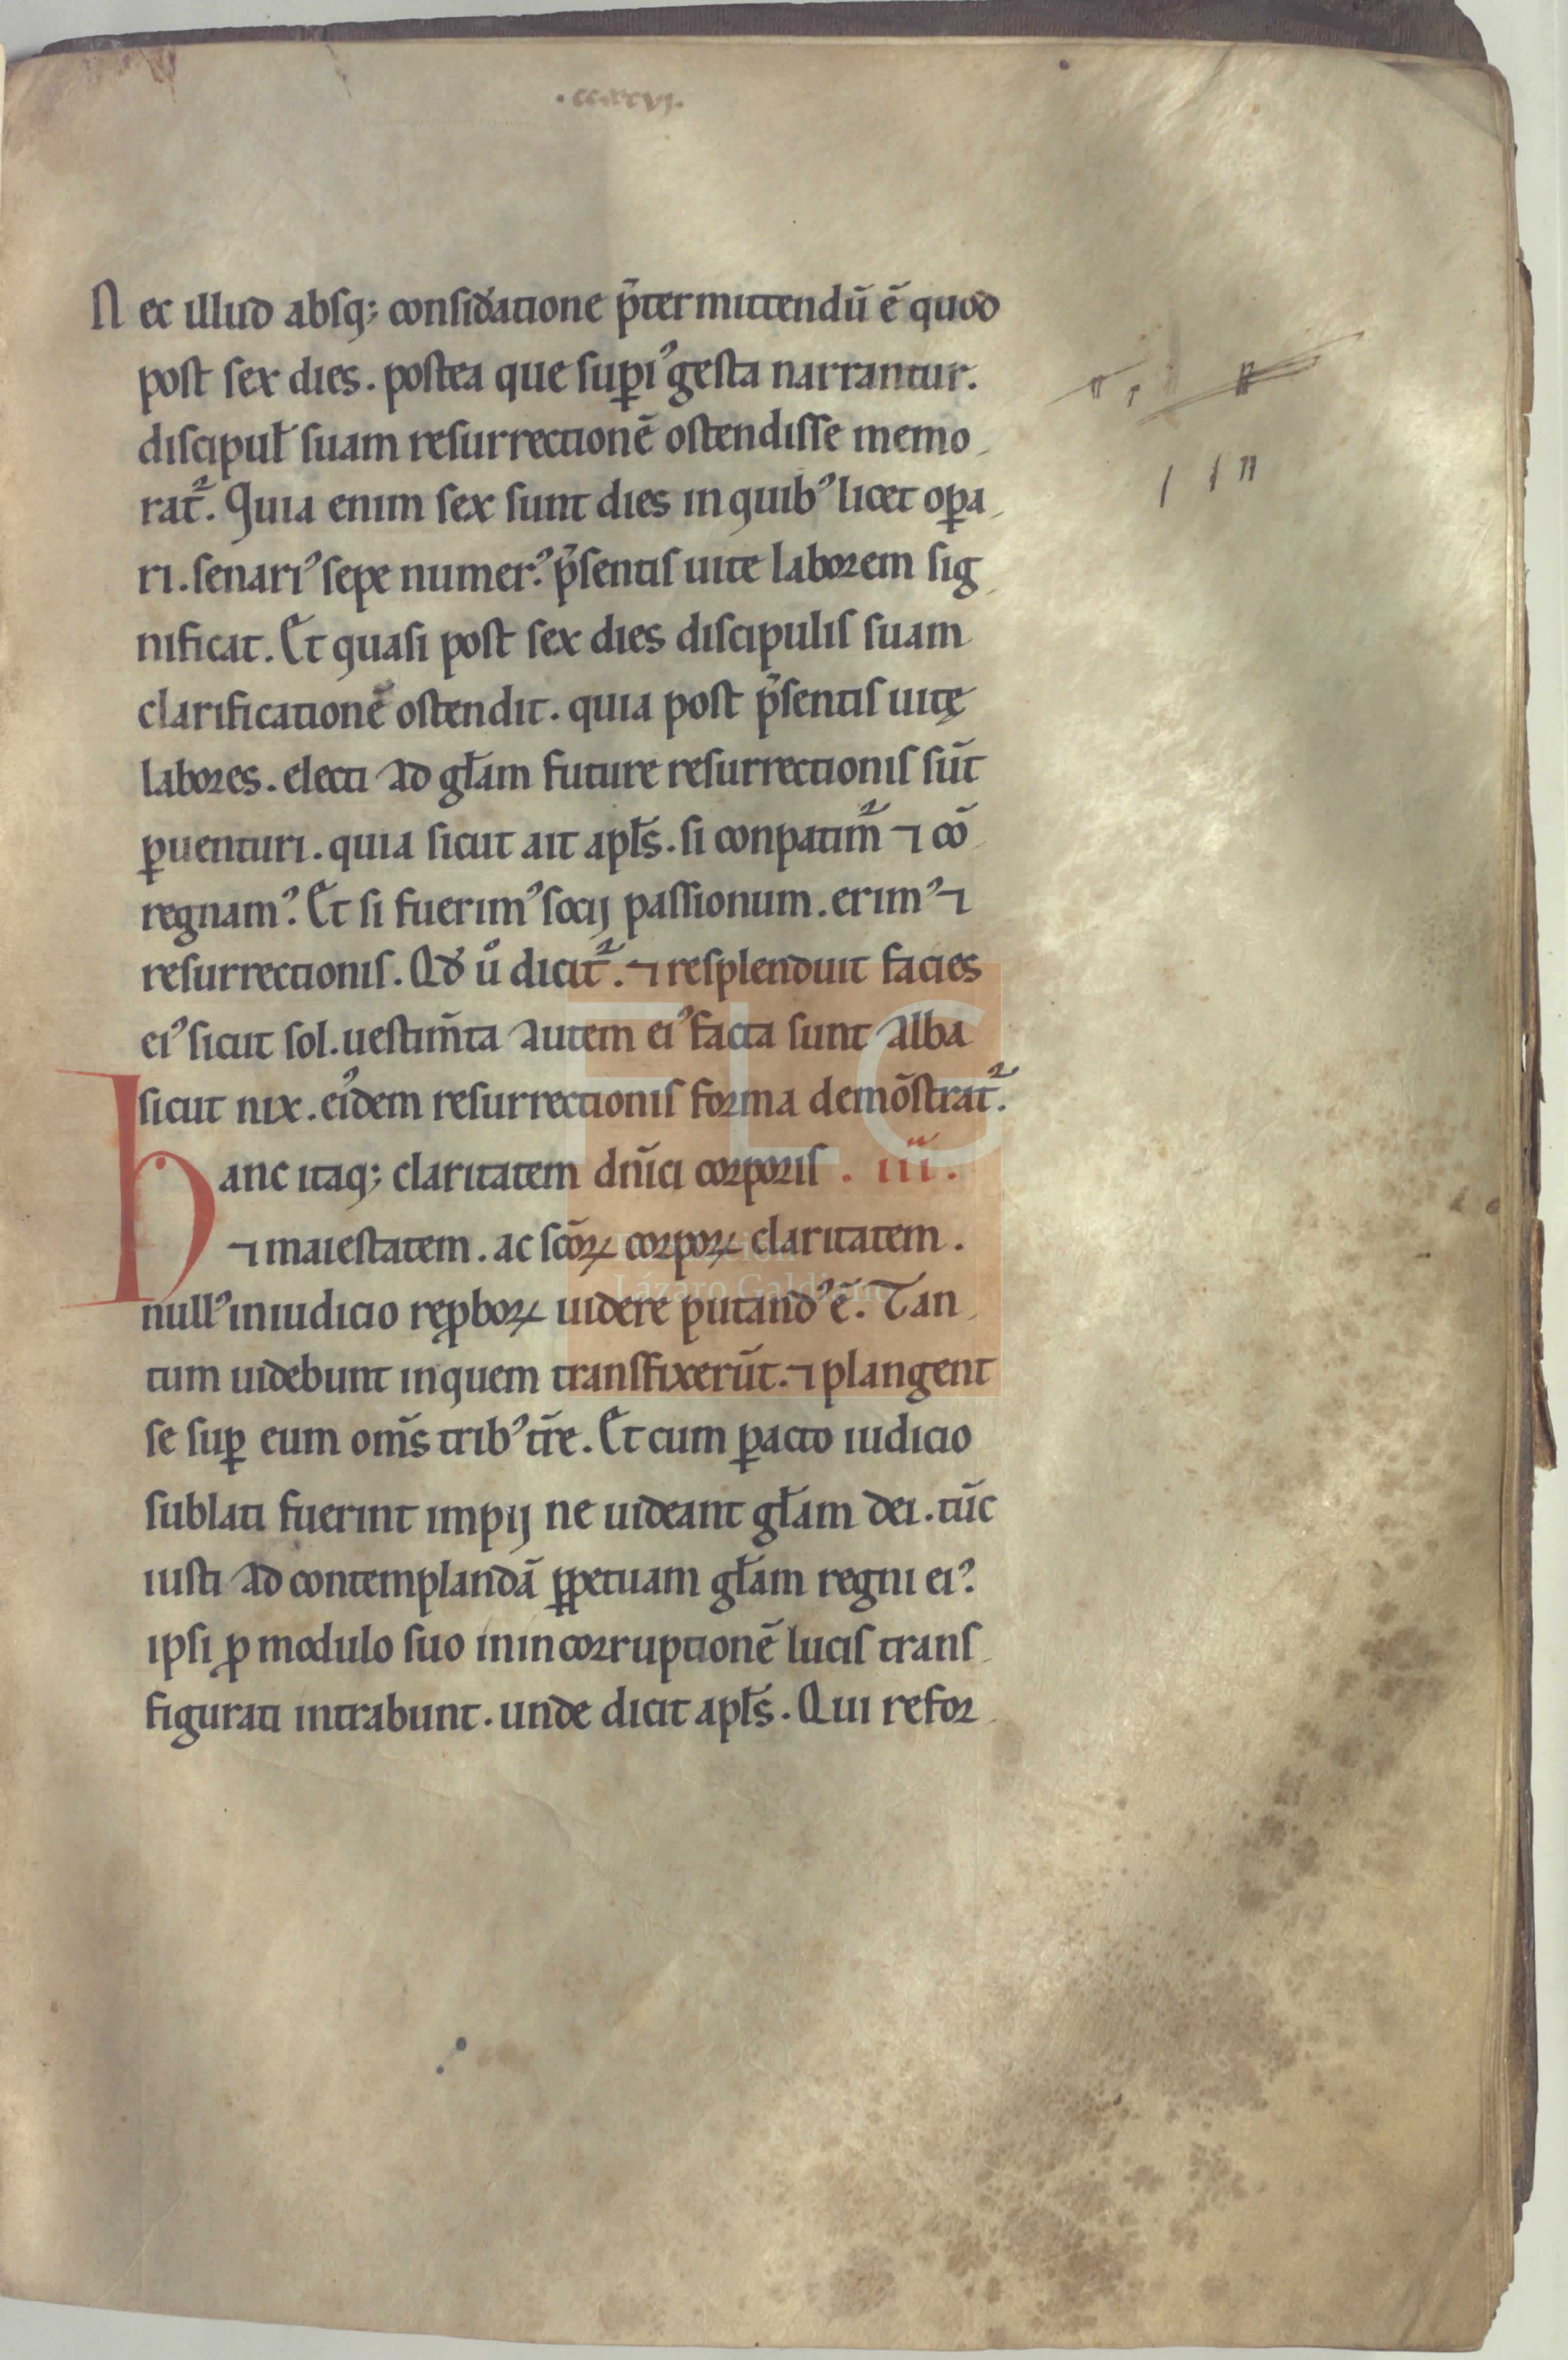 .ccxcvi.
Nec illud absq; consid̾atione p̄termittendū ē quod
post sex dies. postea que sup̲iꝰ gesta narrantur.
discipul̵ suam resurrectionē ostendisse memo
rat᷑. Quia enim sex sunt dies in quibꝰ licet oꝑa
ri. senariꝰ sepe numerꝰ. p̄sentis uite laborem sig
nificat. Et quasi post sex dies discipulis suam
clarificationē ostendit. quia post p̄sentis uitę
labores. electi ad gl̄am future resurrectionis sūt
ꝑuenturi. quia sicut ait apl̄s. si conpatim᷑ ⁊ cō
regnamꝰ. Et si fuerimꝰ socij passionum. erimꝰ ⁊
resurrectionis. Qd̾ uͦ dicit᷑. ⁊ resplenduit facies
eiꝰ sicut sol. uestim̄ta autem eiꝰ facta sunt alba
sicut nix. eiꝰdem resurrectionis forma demōstrat᷑.
Hanc itaq; claritatem dn̄ici corporis . iii.
⁊ maiestatem. ac sc̄oꝝ corpoꝝ claritatem.
nullꝰ in iudicio reꝓboꝝ uidere putandꝰ ē. Tan
tum uidebunt in quem transfixerūt. ⁊ plangent
se suꝑ eum om̄s tribꝰ tr̄e. Et cum ꝑacto iudicio
sublati fuerint impij ne uideant gl̄am dei. tūc
iusti ad contemplandā ꝑpetuam gl̄am regni eiꝰ.
ipsi ꝓ modulo suo in incorruptionē lucis trans
figurati intrabunt. unde dicit apl̄s. Qui refor
FLG
Fundación
Lázaro Galdiano